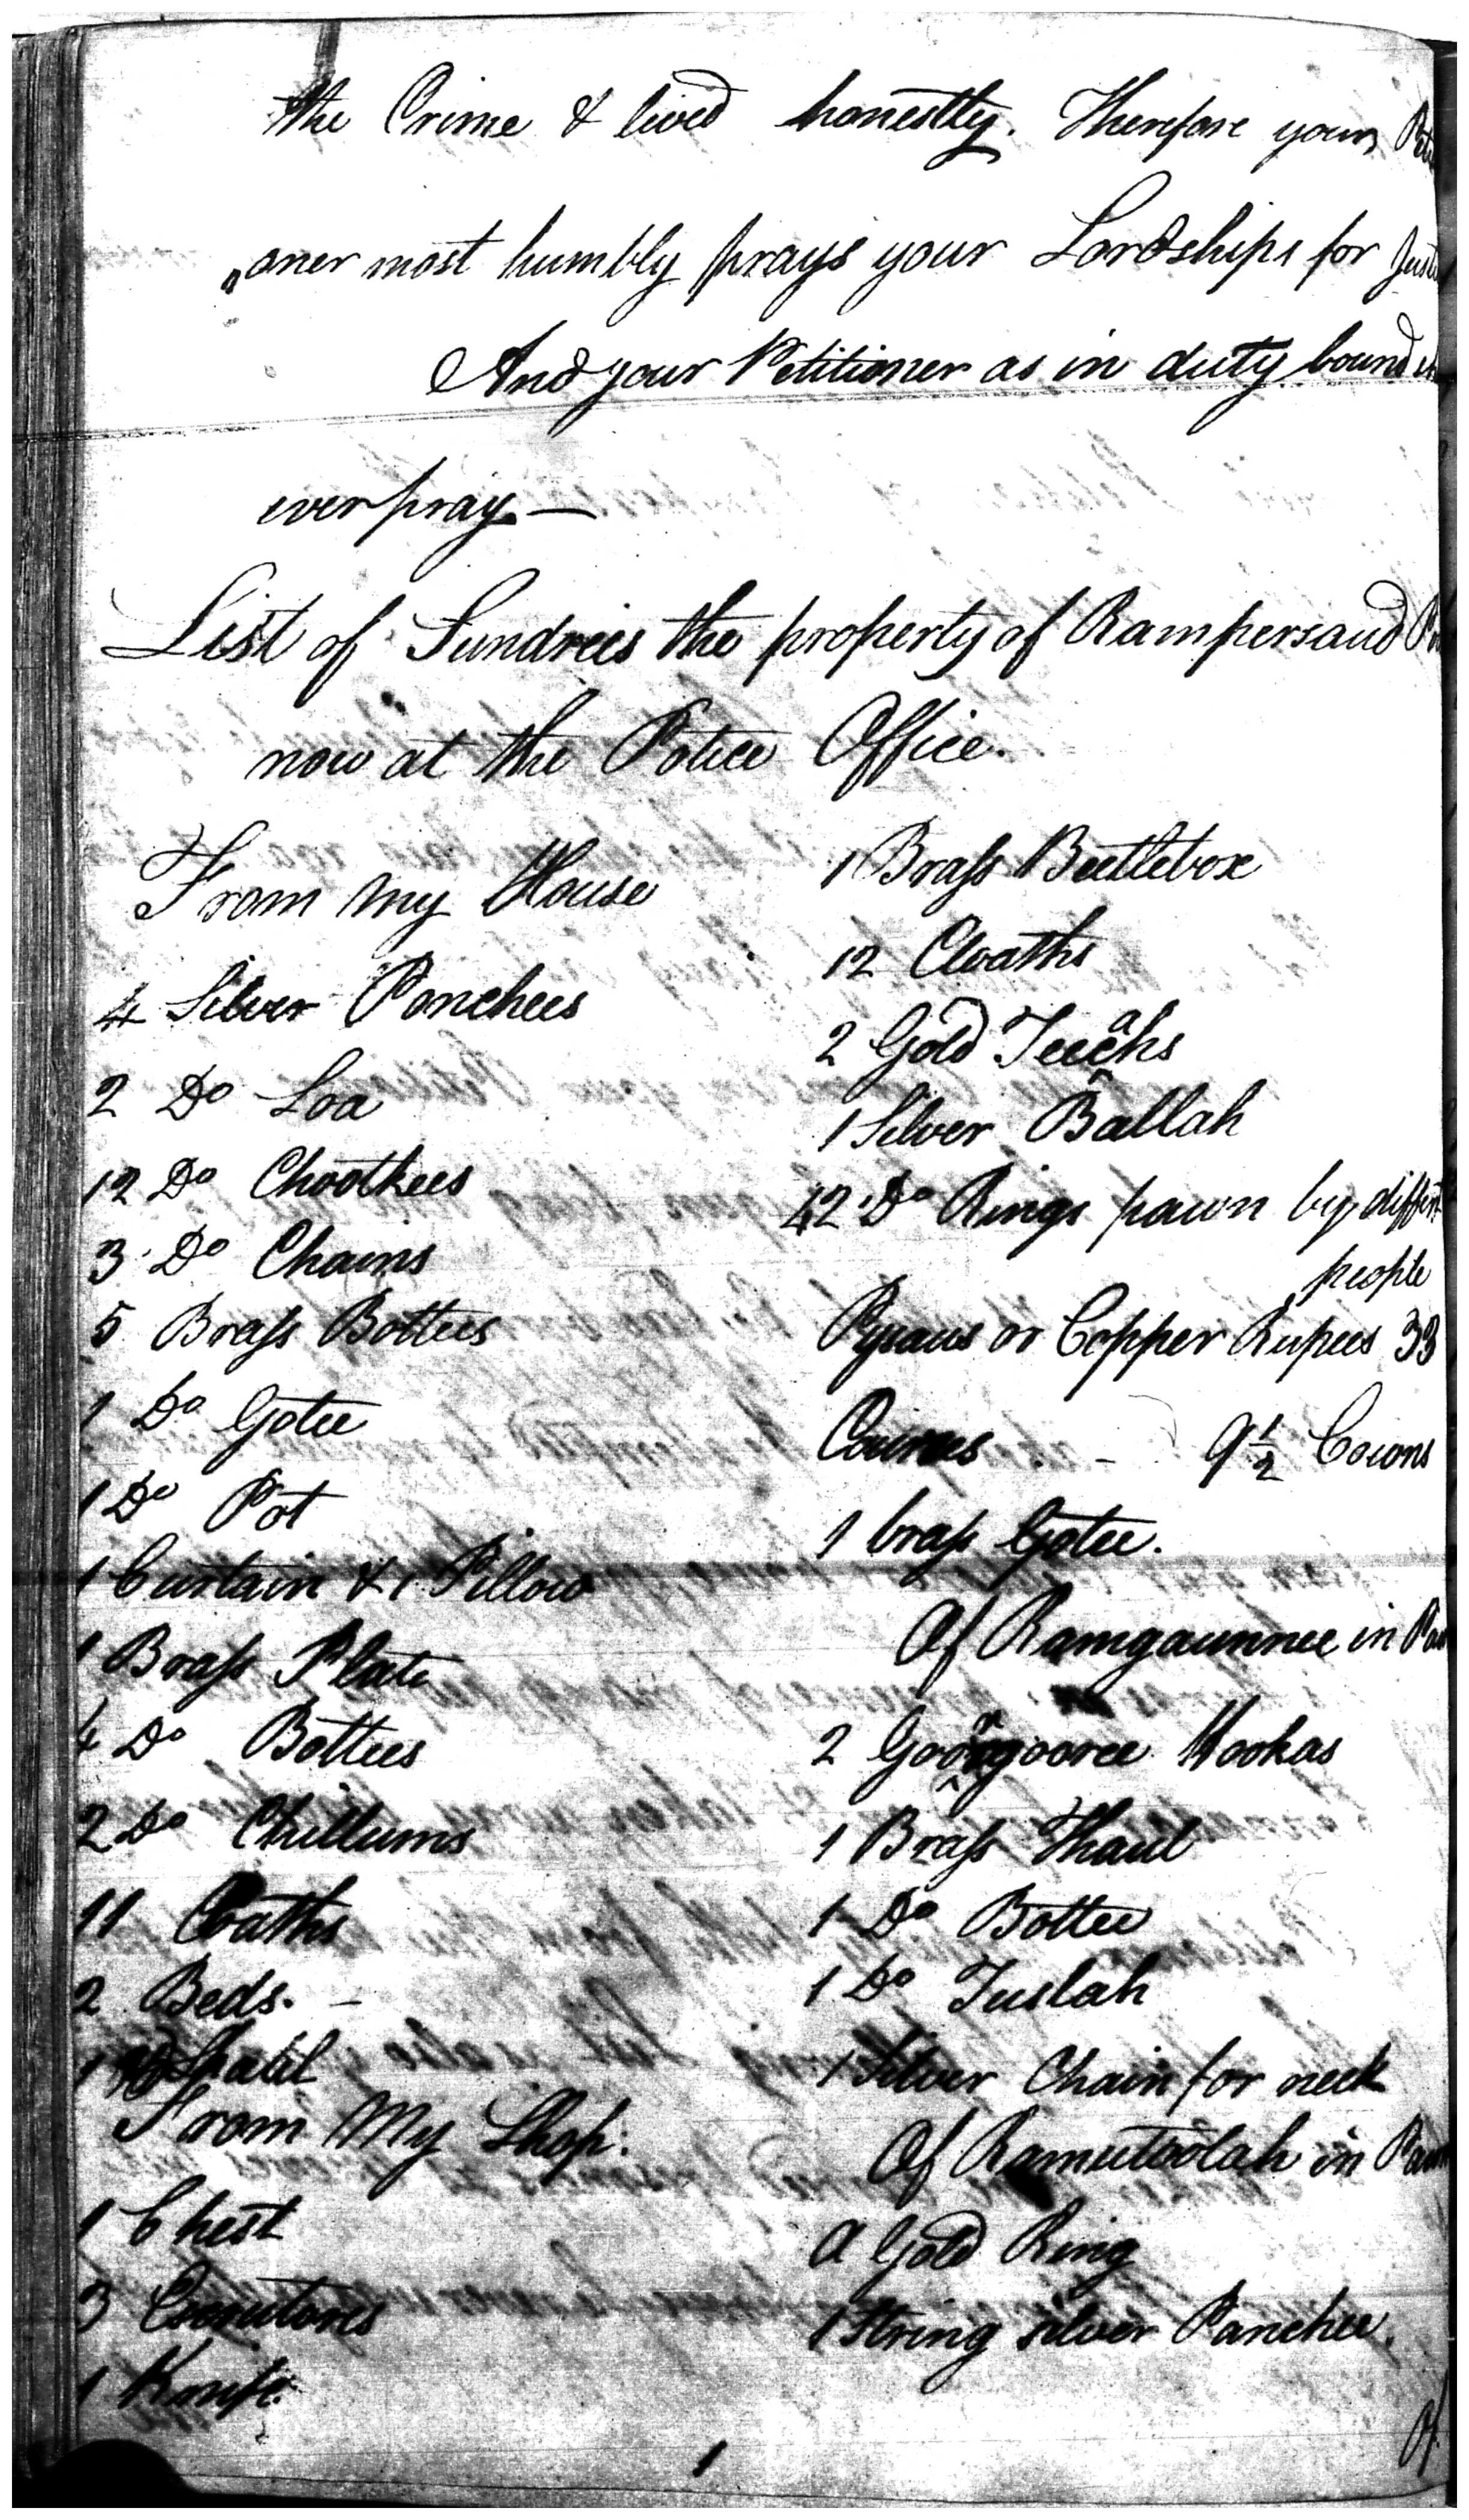 the Crime & lived honestly. Therefore your
oner most humbly prays your Lordships for
And your Petitioner as in duty bound
ever pray —
List of Sundries the property of Rampersaud
now at the Police Office.
From my House
4 Silver Ponchees
2 Do Loa
12 Do Chootkees
3 Do Chains
5 Brass Bottees
1 Do Gotee
1 Do Pot
1 Curtain & 1 Pillow
1 Brass Plate
4 Do Bottees
2 Do Chillums
11 Cloaths
2 Beds. —
1
From My Shop.
1 Chest
3
1 Knife.
1 Brass Beetlebox
12 Cloaths
2 Gold Teecahs
1 Silver Ballah
42 Do Rings pawn by differt
people
Pysaus or Copper Rupees 33
Cowries - 9 1/2 Cowns
1 brass Gotee.
Of Ramgaunnee in
2 Hookas
1 Brass Thaul
1 Do Bottee
1 Do Tuslah
1 Silver Chain for neck
Of Ramutoolah in
A Gold Ring
1 String silver Panchee.
Of